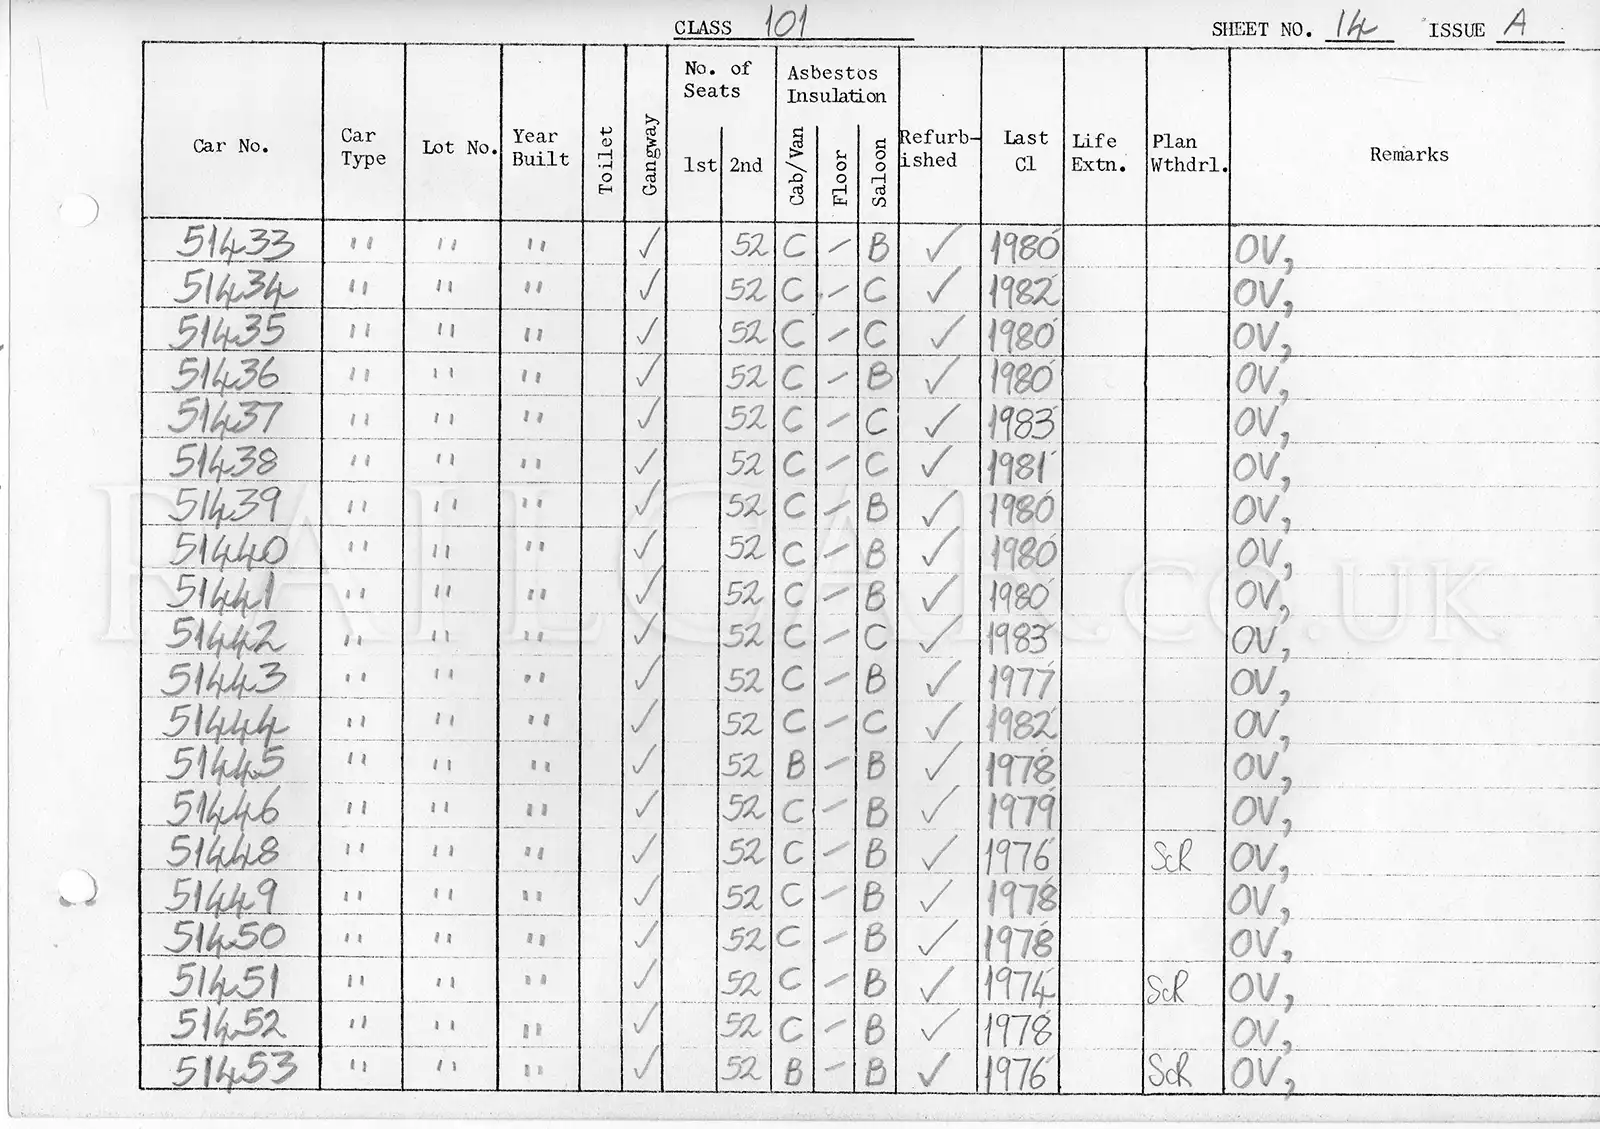 CLASS 101 SHEET NO. 14 ISSUE A
Car No. Car Type Lot No. Year Built Toilet Gangway No. of Seats 1st 2nd Asbestos Insulation Cab/Van Floor Saloon Refurb-ished Last Cl Life Extn. Plan Wthdrl. Remarks
51433 " " " ✓ 52 C – B ✓ 1980 OV,
51434 " " " ✓ 52 C – C ✓ 1982 OV,
51435 " " " ✓ 52 C – C ✓ 1980 OV,
51436 " " " ✓ 52 C – B ✓ 1980 OV,
51437 " " " ✓ 52 C – C ✓ 1983 OV,
51438 " " " ✓ 52 C – C ✓ 1981 OV,
51439 " " " ✓ 52 C – B ✓ 1980 OV,
51440 " " " ✓ 52 C – B ✓ 1980 OV,
51441 " " " ✓ 52 C – B ✓ 1980 OV,
51442 " " " ✓ 52 C – C ✓ 1983 OV,
51443 " " " ✓ 52 C – B ✓ 1977 OV,
51444 " " " ✓ 52 C – C ✓ 1982 OV,
51445 " " " ✓ 52 B – B ✓ 1978 OV,
51446 " " " ✓ 52 C – B ✓ 1979 OV,
51448 " " " ✓ 52 C – B ✓ 1976 ScR OV,
51449 " " " ✓ 52 C – B ✓ 1978 OV,
51450 " " " ✓ 52 C – B ✓ 1978 OV,
51451 " " " ✓ 52 C – B ✓ 1974 ScR OV,
51452 " " " ✓ 52 C – B ✓ 1978 OV,
51453 " " " ✓ 52 B – B ✓ 1976 ScR OV,
RAILCAR.CO.UK